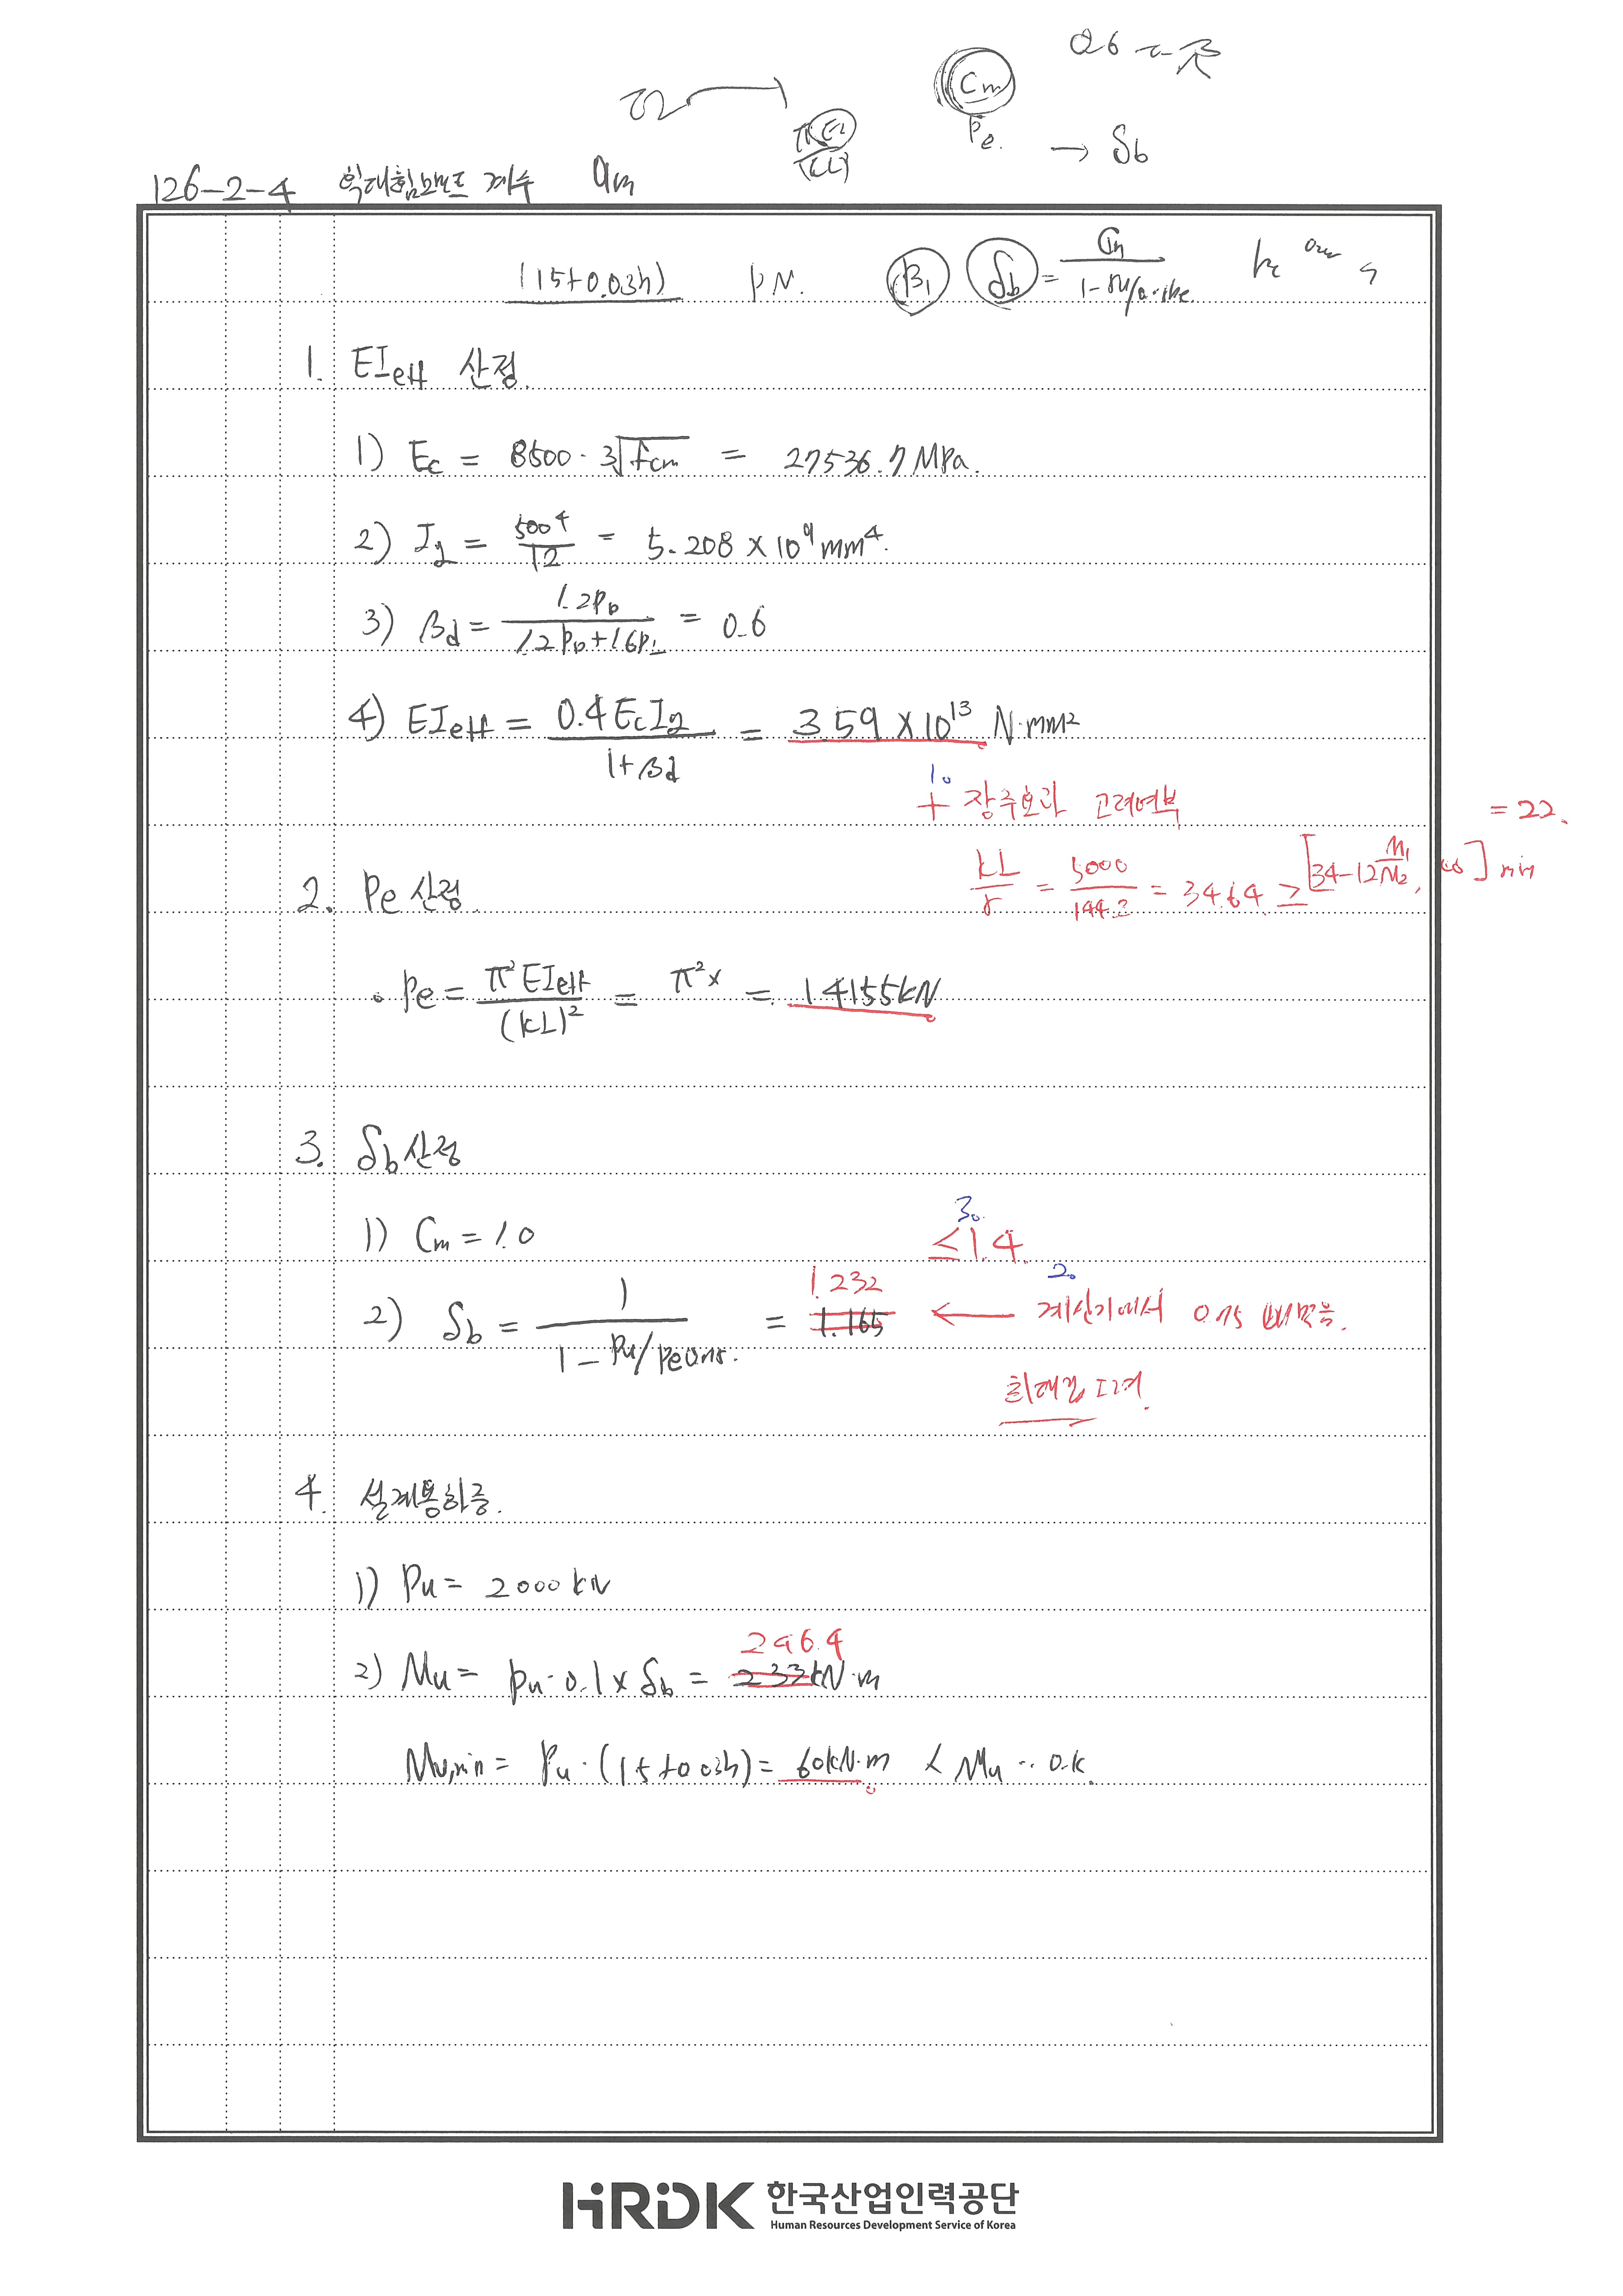 Cm
Pe
→ δb
126-2-4 확대휨모멘트 계수
(15+0.03h) β1 δb = Cm / 1-Pu/0.75Pe
1. EIeff 산정.
1) Ec = 8500·3√fcm = 27536.7 MPa.
2) Ig = 500⁴/12 = 5.208 × 10⁹ mm⁴.
3) βd = 1.2PD / 1.2PD+1.6PL = 0.6
4) EIeff = 0.4EcIg / 1+βd = 3.59 × 10¹³ N·mm²
1.
+ 장주효과 고려여부
kL/r = 5000/144.3 = 34.64 ≥ [34-12 M1/M2, 40] min = 22.
2. Pe 산정.
• Pe = π²EIeff / (kL)² = π²× = 14155kN
3. δb 산정
3.
1) Cm = 1.0 ≤1.4
2.
2) δb = 1 / 1-Pu/Pe0.75. = 1.165 1.232 ← 계산기에서 0.75 빼먹음.
4. 설계용하중.
1) Pu = 2000kN
2) Mu = Pu·0.1×δb = 233kN·m 246.4
Mu,min = Pu·(15+0.03h) = 60kN·m < Mu ∴ O.K.
HRDK 한국산업인력공단
Human Resources Development Service of Korea